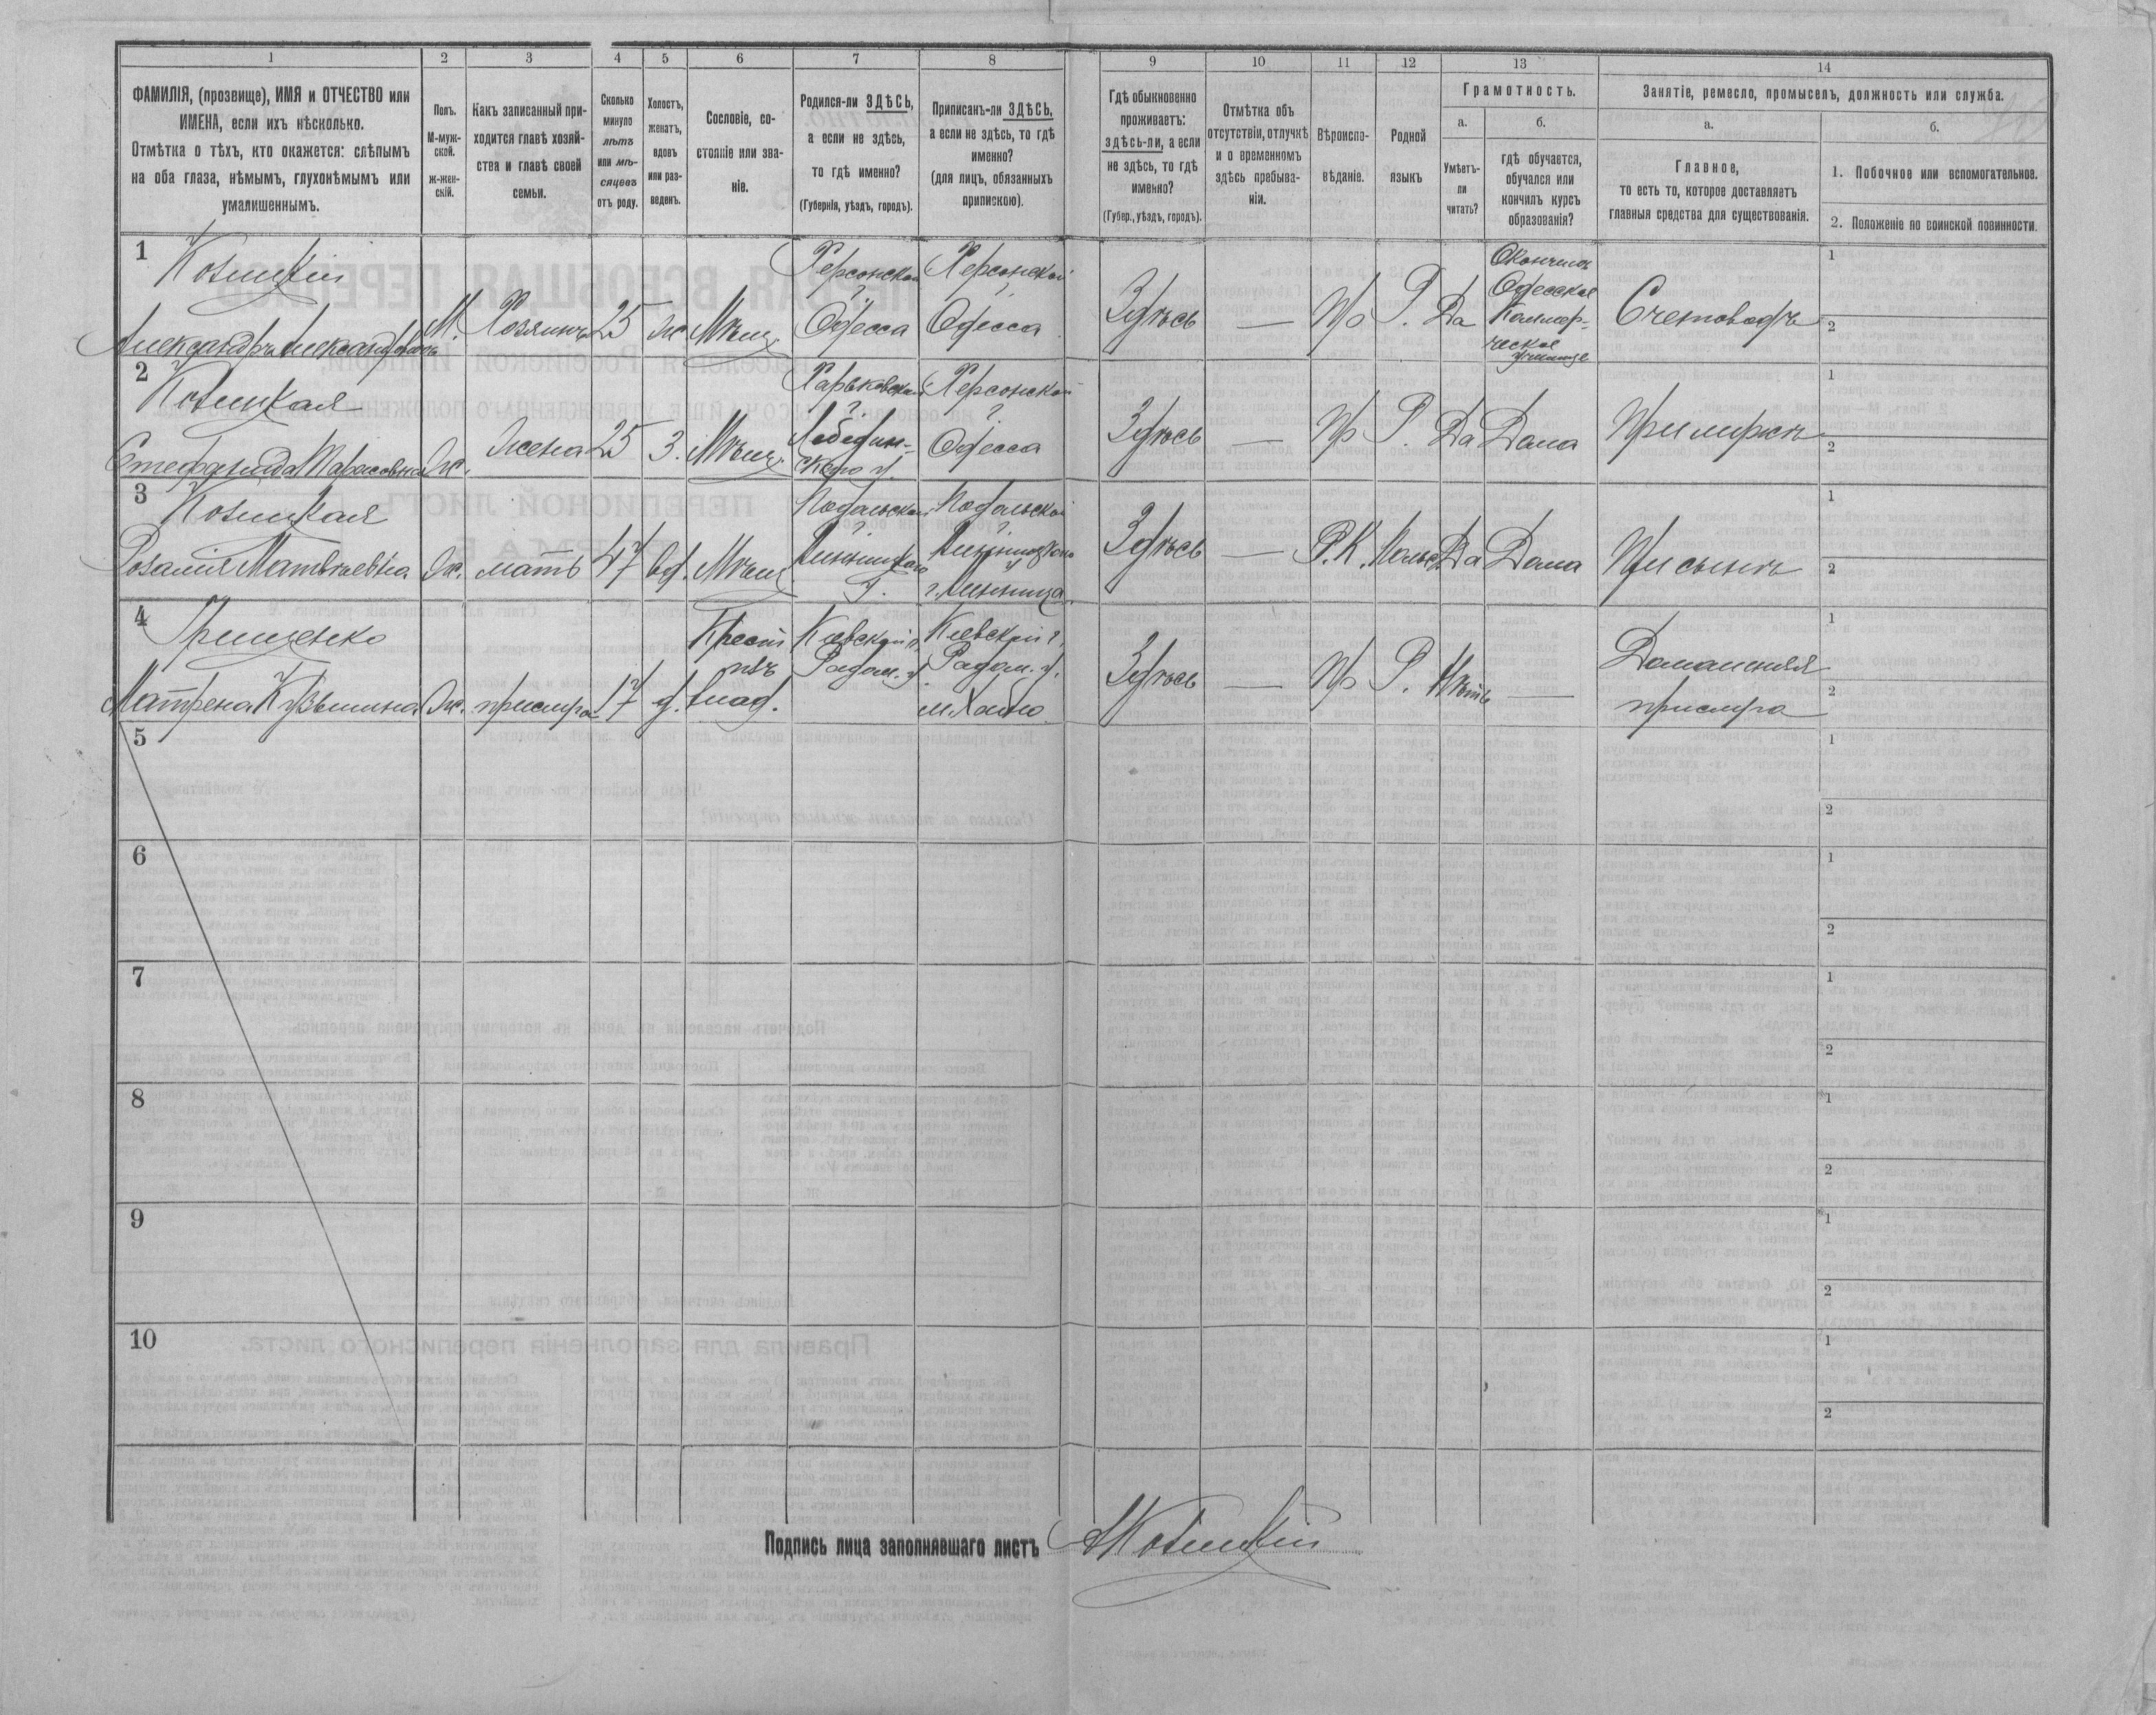 1 2 3 4 5 6 7 8 9 10 11 12 13 14
ФАМИЛІЯ, (прозвище), ИМЯ и ОТЧЕСТВО или
ИМЕНА, если ихъ нѣсколько.
Отмѣтка о тѣхъ, кто окажется: слѣпымъ
на оба глаза, нѣмымъ, глухонѣмымъ или
умалишеннымъ.
Полъ.
М-муж-
ской.
ж-жен-
скій.
Какъ записанный при-
ходится главѣ хозяй-
ства и главѣ своей
семьи.
Сколько
минуло
лѣтъ
или мѣ-
сяцевъ
отъ роду.
Холостъ,
женатъ,
вдовъ
или раз-
веденъ.
Сословіе, со-
стояніе или зва-
ніе.
Родился-ли ЗДѢСЬ,
а если не здѣсь,
то гдѣ именно?
(Губернія, уѣздъ, городъ).
Приписанъ-ли ЗДѢСЬ,
а если не здѣсь, то гдѣ
именно?
(для лицъ, обязанныхъ
припискою).
Гдѣ обыкновенно
проживаетъ:
здѣсь-ли, а если
не здѣсь, то гдѣ
именно?
(Губер., уѣздъ, городъ).
Отмѣтка объ
отсутствіи, отлучкѣ
и о временномъ
здѣсь пребыва-
ніи.
Вѣроиспо-
вѣданіе.
Родной
языкъ
Грамотность.
а.
Умѣетъ-
ли
читать?
б.
гдѣ обучается,
обучался или
кончилъ курсъ
образованія?
Занятіе, ремесло, промыселъ, должность или служба.
а.
Главное,
то есть то, которое доставляетъ
главныя средства для существованія.
б.
1. Побочное или вспомогательное.
2. Положеніе по воинской повинности.
1
Козицкій
Александръ Александровичъ
М. Хозяинъ 25 ж. Мѣщ.
Херсонской г.
Одесса
Херсонской г.
Одесса
Здѣсь — Пр Р. Да
Окончилъ
Одесское
Коммер-
ческое
училище
Счетоводъ
1
2
2
Козицкая
Степанида Тарасовна
Ж. Жена 25 З. Мѣщ.
Харьковской
г.
Лебедин-
скаго у.
Херсонской
г.
Одесса
Здѣсь — Пр Р. Да Дома
При мужѣ
1
2
3
Козицкая
Розалія Матвѣевна
Ж. мать 47 вд. Мѣщ
Подольской
г.
Винницкаго
у.
Подольской
г.
Винницкаго
у.
г. Винница
Здѣсь — Р.К. Польс. Да Дома
При сынѣ
1
2
4
Грищенко
Матрена Кузьмина
Ж. прислуга 17 д.
Крест
изъ
влад.
Кіевской г.
Радом. у.
Кіевской г.
Радом. у.
м. Хабно
Здѣсь — Пр Р. Нѣтъ —
Домашняя
прислуга
1
2
5
1
2
6
1
2
7
1
2
8
1
2
9
1
2
10
1
2
Подпись лица заполнявшаго листъ АКозицкій